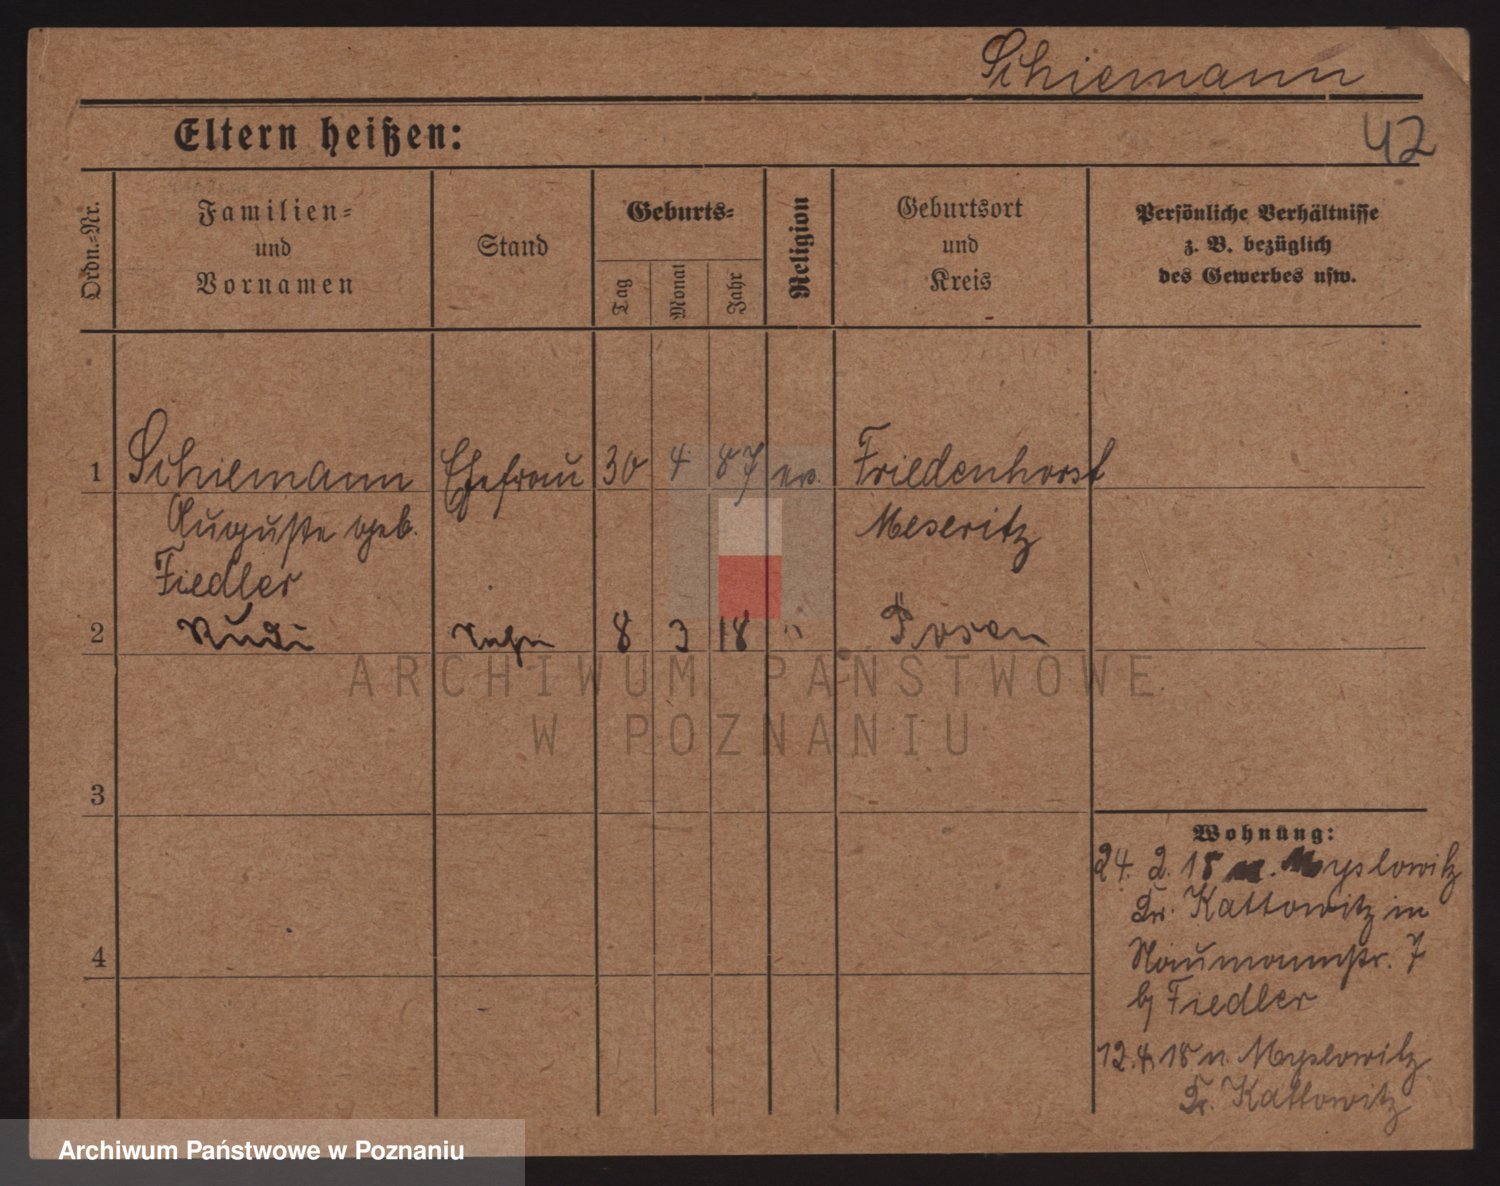 Schiemann
Eltern heißen:
42
Ordn.-Nr.
Familien-
und
Vornamen
Stand
Geburts-
Tag
Monat
Jahr
Religion
Geburtsort
und
Kreis
Persönliche Verhältnisse
z. B. bezüglich
des Gewerbes usw.
1 Schiemann Ehefrau 30 4 87 ev. Friedenhorst
Auguste geb. Meseritz
Fiedler
2 Rudi Sohn 8 3 18 " Posen
ARCHIWUM PAŃSTWOWE
W POZNANIU
3
4
Wohnung:
24. 2. 18 Myslowitz
Kr. Kattowitz in
Naumannstr. 7
b/ Fiedler
12.4.18 n. Myslowitz
Kr. Kattowitz
Archiwum Państwowe w Poznaniu